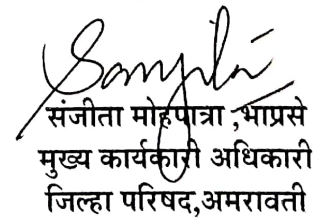 संजीता मोहपात्रा ,भाप्रसे
मुख्य कार्यकारी अधिकारी
जिल्हा परिषद,अमरावती